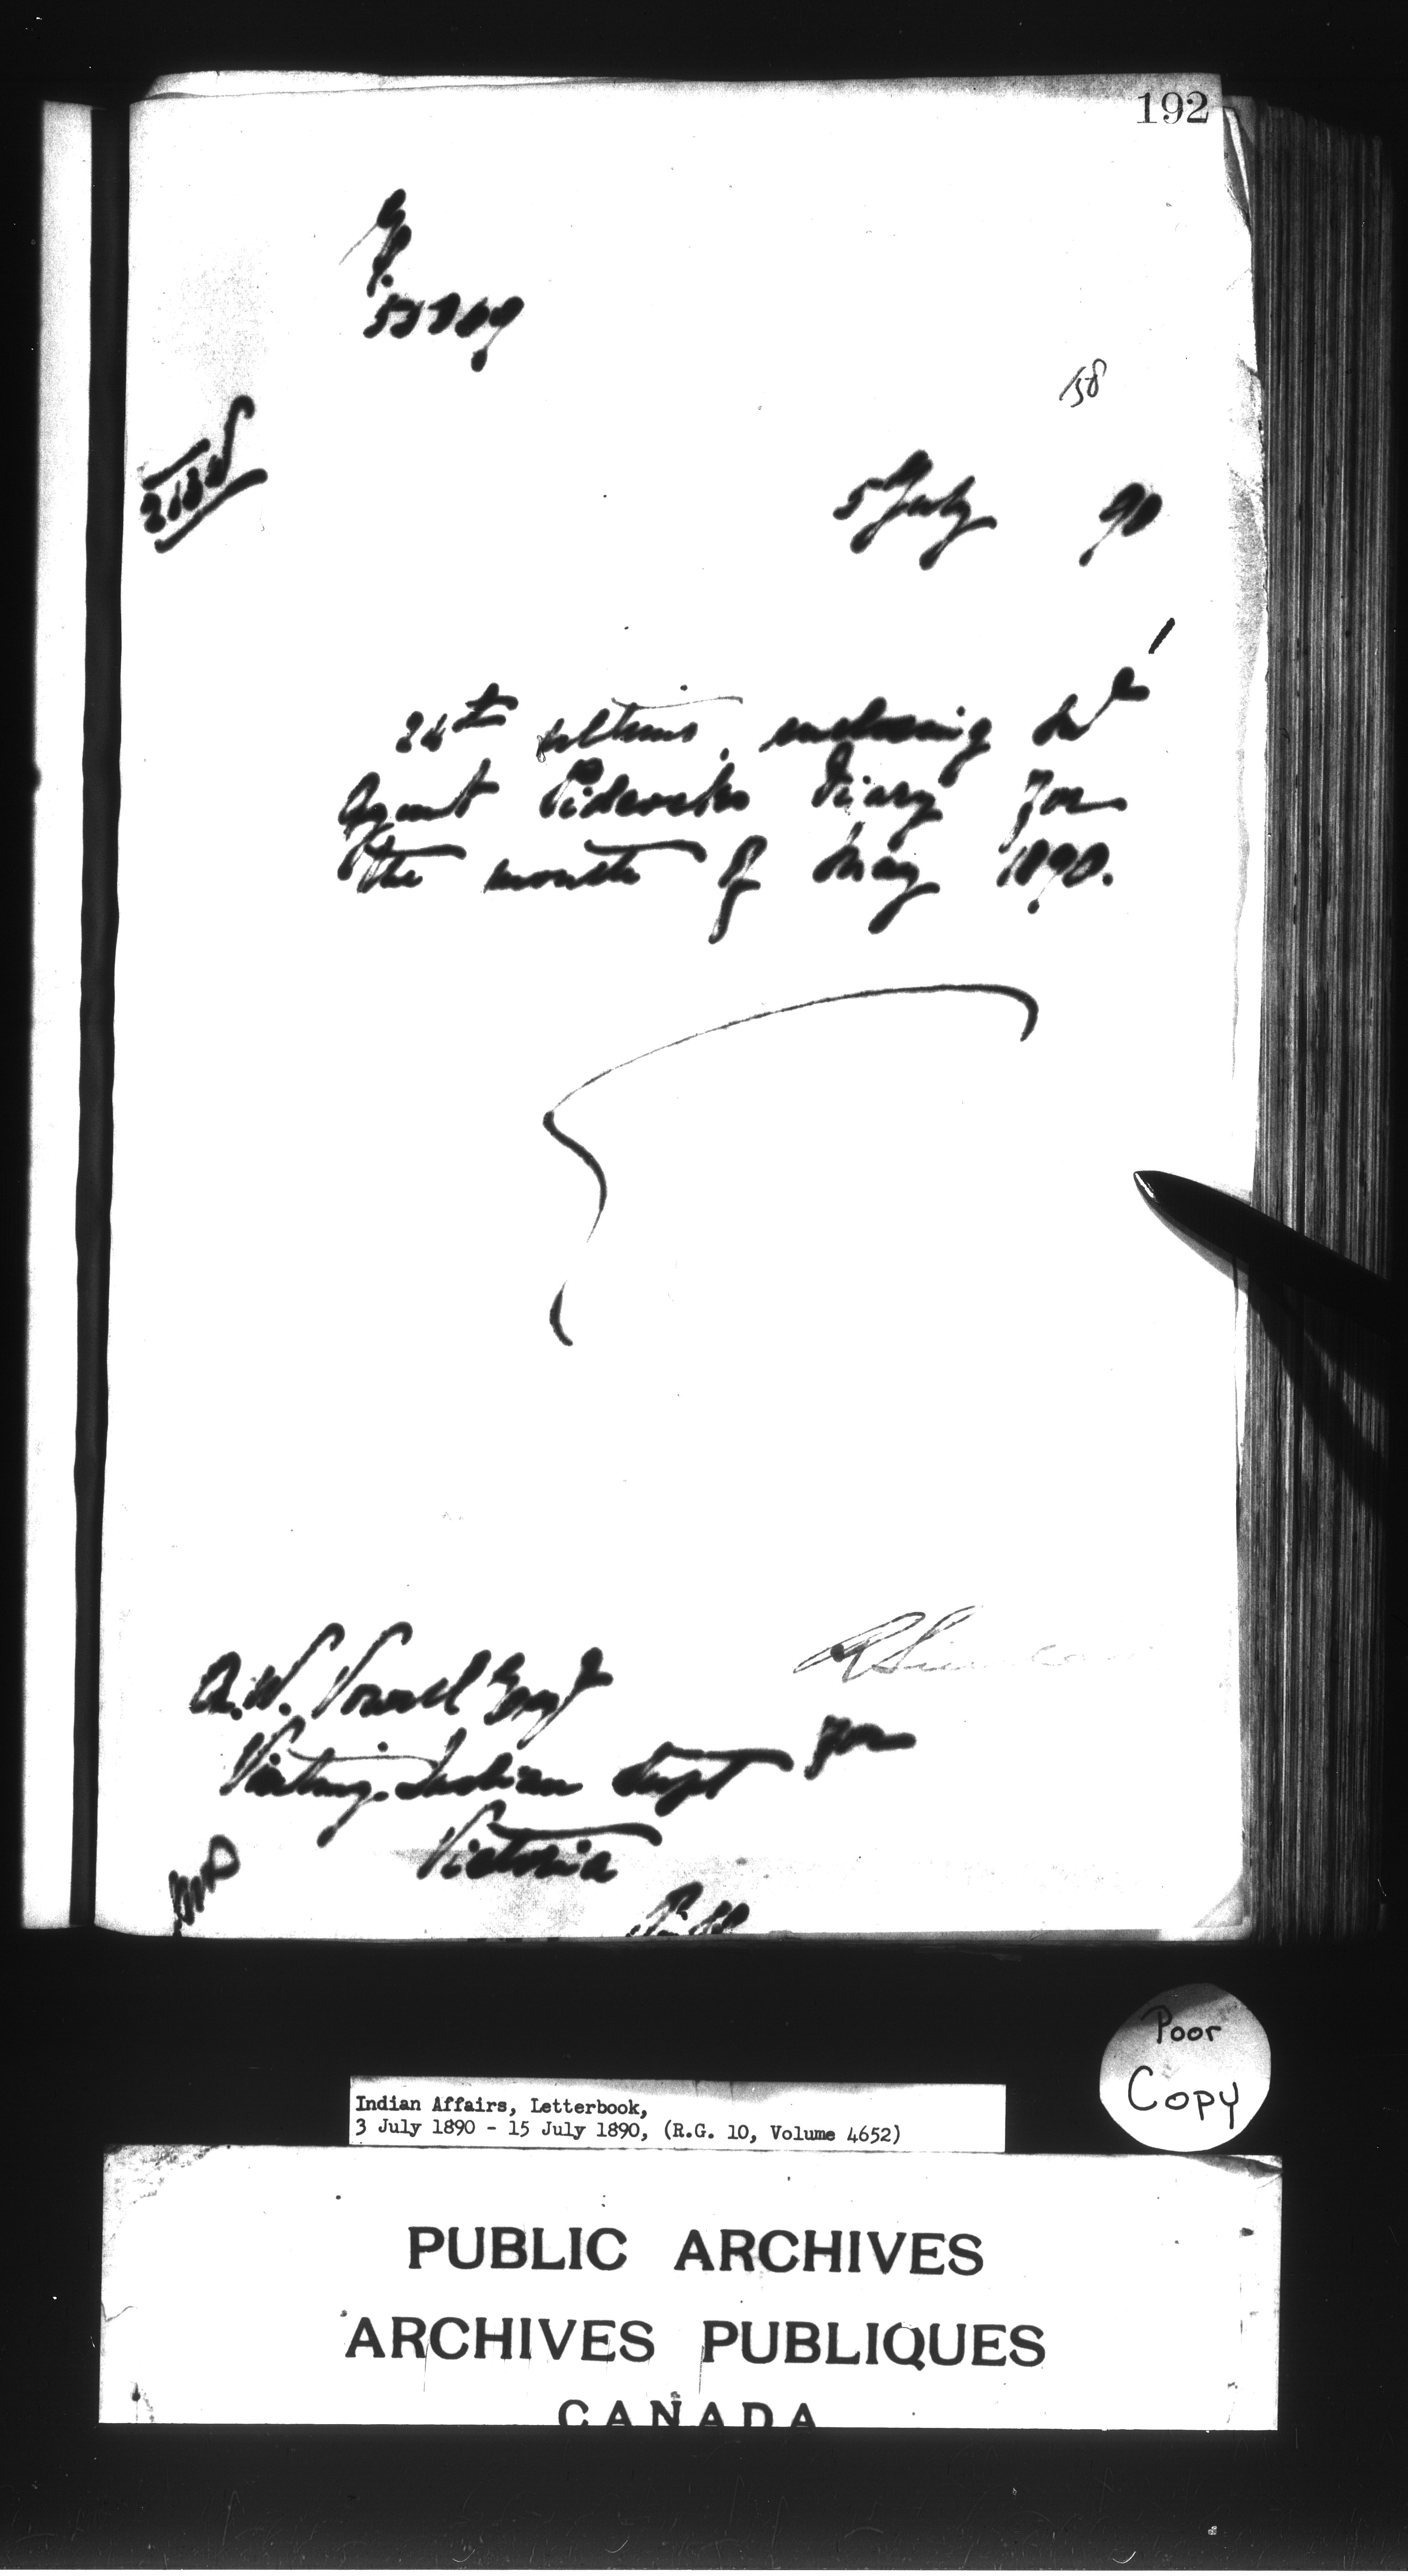 192
158
5 July 90
ultimo, enclosing
Agent Pidcocks Diary for
the month of May 1890.
A.W. Vowell Esq
for
Visiting Indian Supt
Victoria
Poor
Copy
Indian Affairs, Letterbook,
3 July 1890 - 15 July 1890, (R.G. 10, Volume 4652)
PUBLIC ARCHIVES
ARCHIVES PUBLIQUES
CANADA